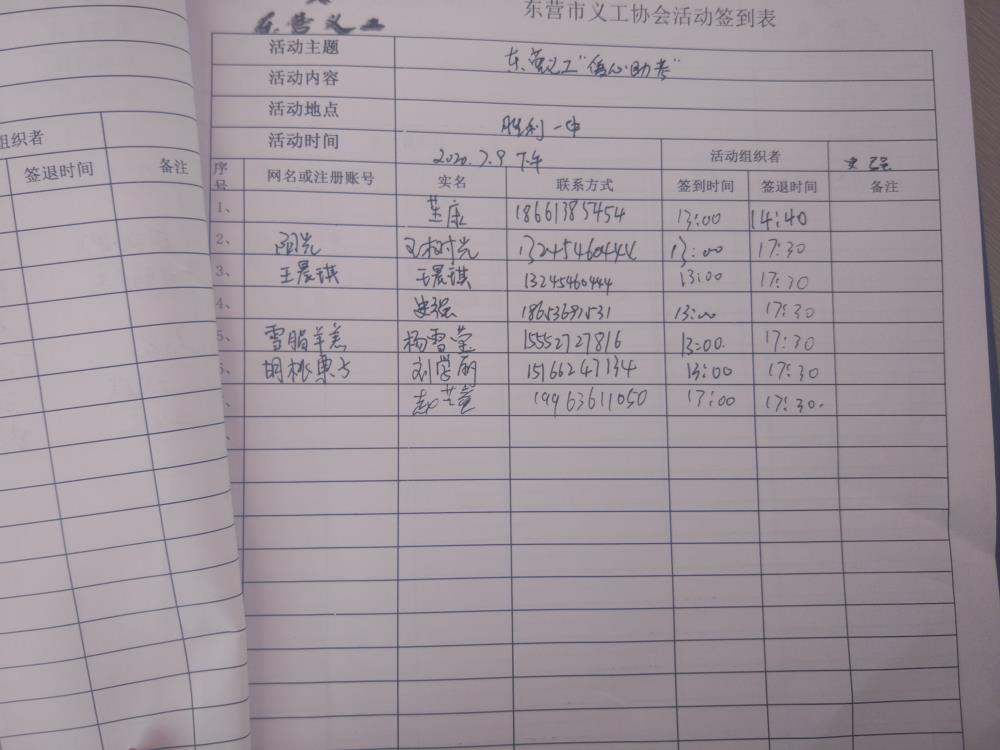 组织者
签退时间 备注
东营义工
东营市义工协会活动签到表
活动主题 东营义工“爱心助考”
活动内容
活动地点 胜利一中
活动时间 2020.7.9 下午 活动组织者 史强
序号 网名或注册账号 实名 联系方式 签到时间 签退时间 备注
1、 康 18661385454 13:00 14:40
2、 阳光 王树光 13245460444 13:00 17:30
3、 王晨琪 王晨琪 13245460444 13:00 17:30
4、 史强 18653681531 13:00 17:30
5、 雪脂羊羔 杨雪莹 15552727816 13:00 17:30
胡桃东方 刘学丽 15166247134 13:00 17:30
赵芷萱 19963611050 17:00 17:30